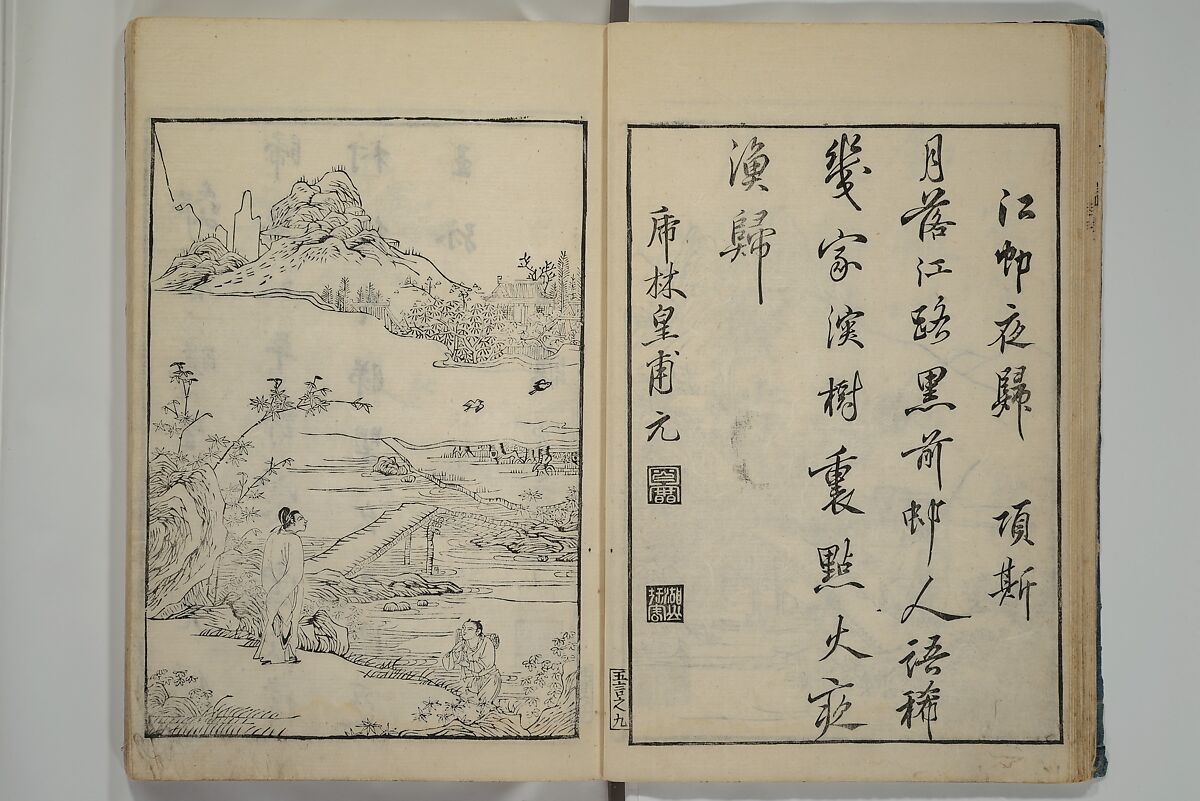 江邨夜歸　項斯
月落江路黑前邨人語稀
幾家深樹裏點火夜
漁歸
虎林皇甫元
五言之九